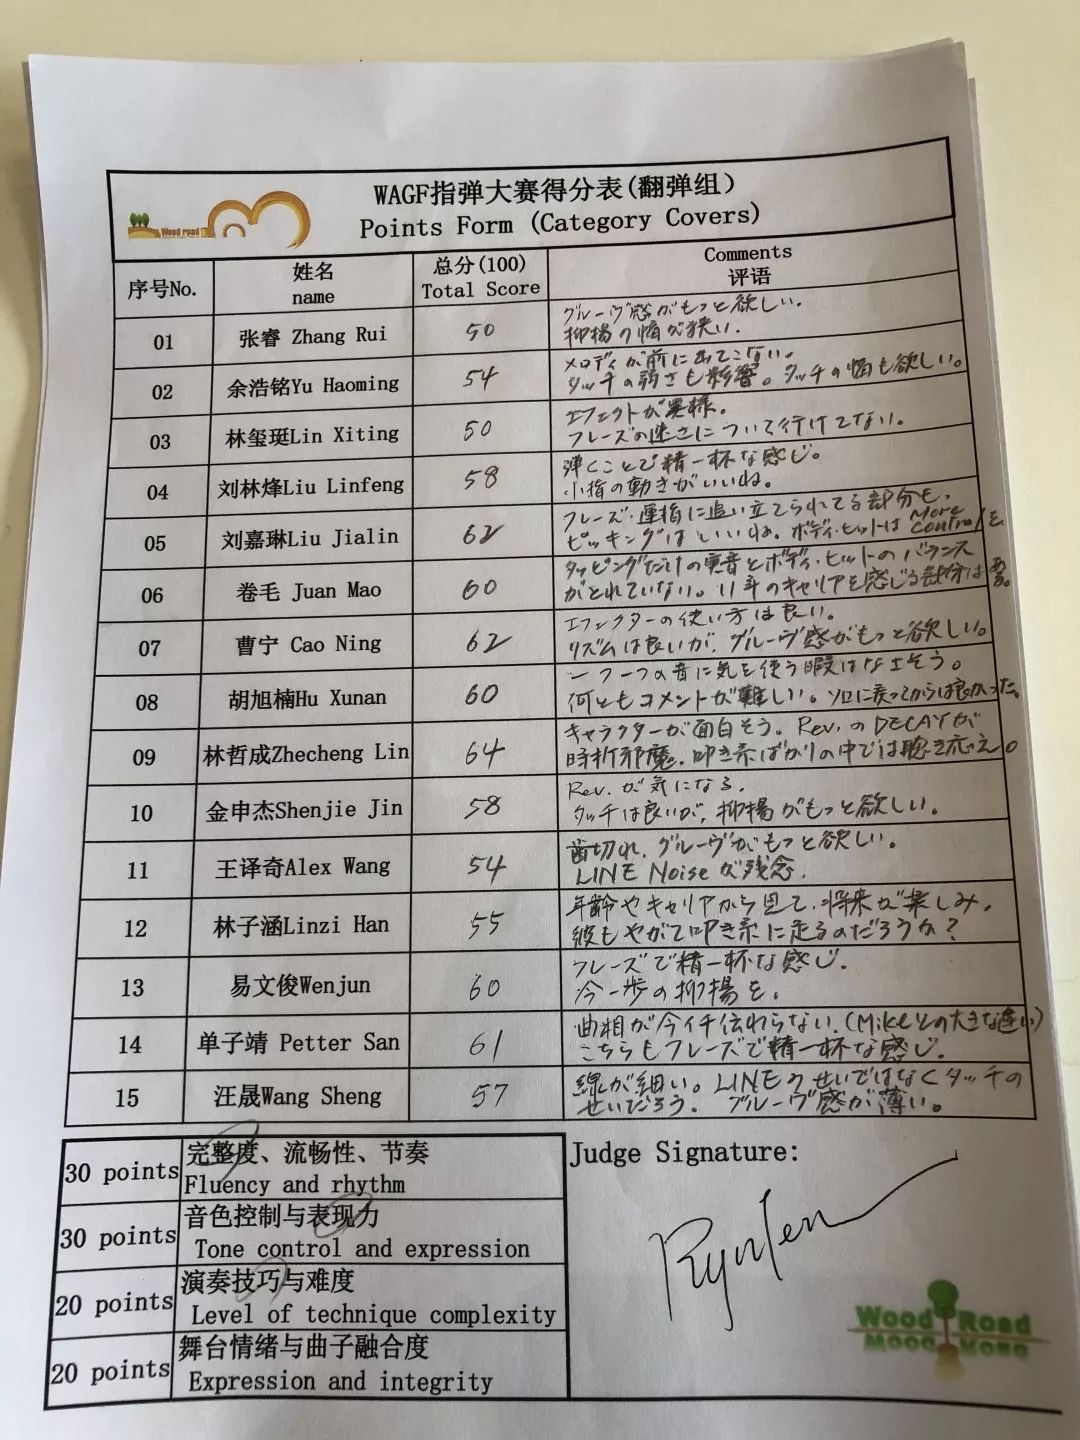 WAGF指弹大赛得分表(翻弹组)
Points Form (Category Covers)
Wood road
序号No.
姓名
name
总分(100)
Total Score
Comments
评语
01
张睿 Zhang Rui
50
グルーヴ感がもっと欲しい.
抑揚の幅が狭い.
02
余浩铭Yu Haoming
54
メロディが前に出てこない。
タッチの弱さも影響。タッチの幅も欲しい。
03
林玺珽Lin Xiting
50
エフェクトが異様。
フレーズの速さについて行けてない。
04
刘林烽Liu Linfeng
58
弾くことで精一杯な感じ。
小指の動きがいいね。
05
刘嘉琳Liu Jialin
62
フレーズ・運指に追い立てられてる部分も,
ピッキングはいいね。ボディ・ヒットは More controlを
06
卷毛 Juan Mao
60
タッピングだけの実音とボディ・ヒットのバランス
がとれていない。11年のキャリアを感じる部分はある。
07
曹宁 Cao Ning
62
エフェクターの使い方は良い。
リズムは良いが、グルーヴ感がもっと欲しい。
08
胡旭楠Hu Xunan
60
一つ一つの音に気を使う暇はなさそう。
何ともコメントが難しい。ソロに戻ってからは良かった。
09
林哲成Zhecheng Lin
64
キャラクターが面白そう。Rev.のDECAYが
時折邪魔。叩き系ばかりの中では聴き応え。
10
金申杰Shenjie Jin
58
Rev.が気になる.
タッチは良いが, 抑揚がもっと欲しい。
11
王译奇Alex Wang
54
歯切れ, グルーヴがもっと欲しい。
LINE Noiseが残念.
12
林子涵Linzi Han
55
年齢やキャリアから見て、将来が楽しみ。
彼もやがて叩き系に走るのだろうか?
13
易文俊Wenjun
60
フレーズで精一杯な感じ.
今一歩の抑揚を。
14
单子靖 Petter San
61
曲相が今イチ伝わらない.(Mikeとの大きな違い)
こちらもフレーズで精一杯な感じ.
15
汪晟Wang Sheng
57
線が細い。LINEのせいではなくタッチの
せいだろう. グルーヴ感が薄い。
30 points
完整度、流畅性、节奏
Fluency and rhythm
30 points
音色控制与表现力
Tone control and expression
20 points
演奏技巧与难度
Level of technique complexity
20 points
舞台情绪与曲子融合度
Expression and integrity
Judge Signature:
Wood Road